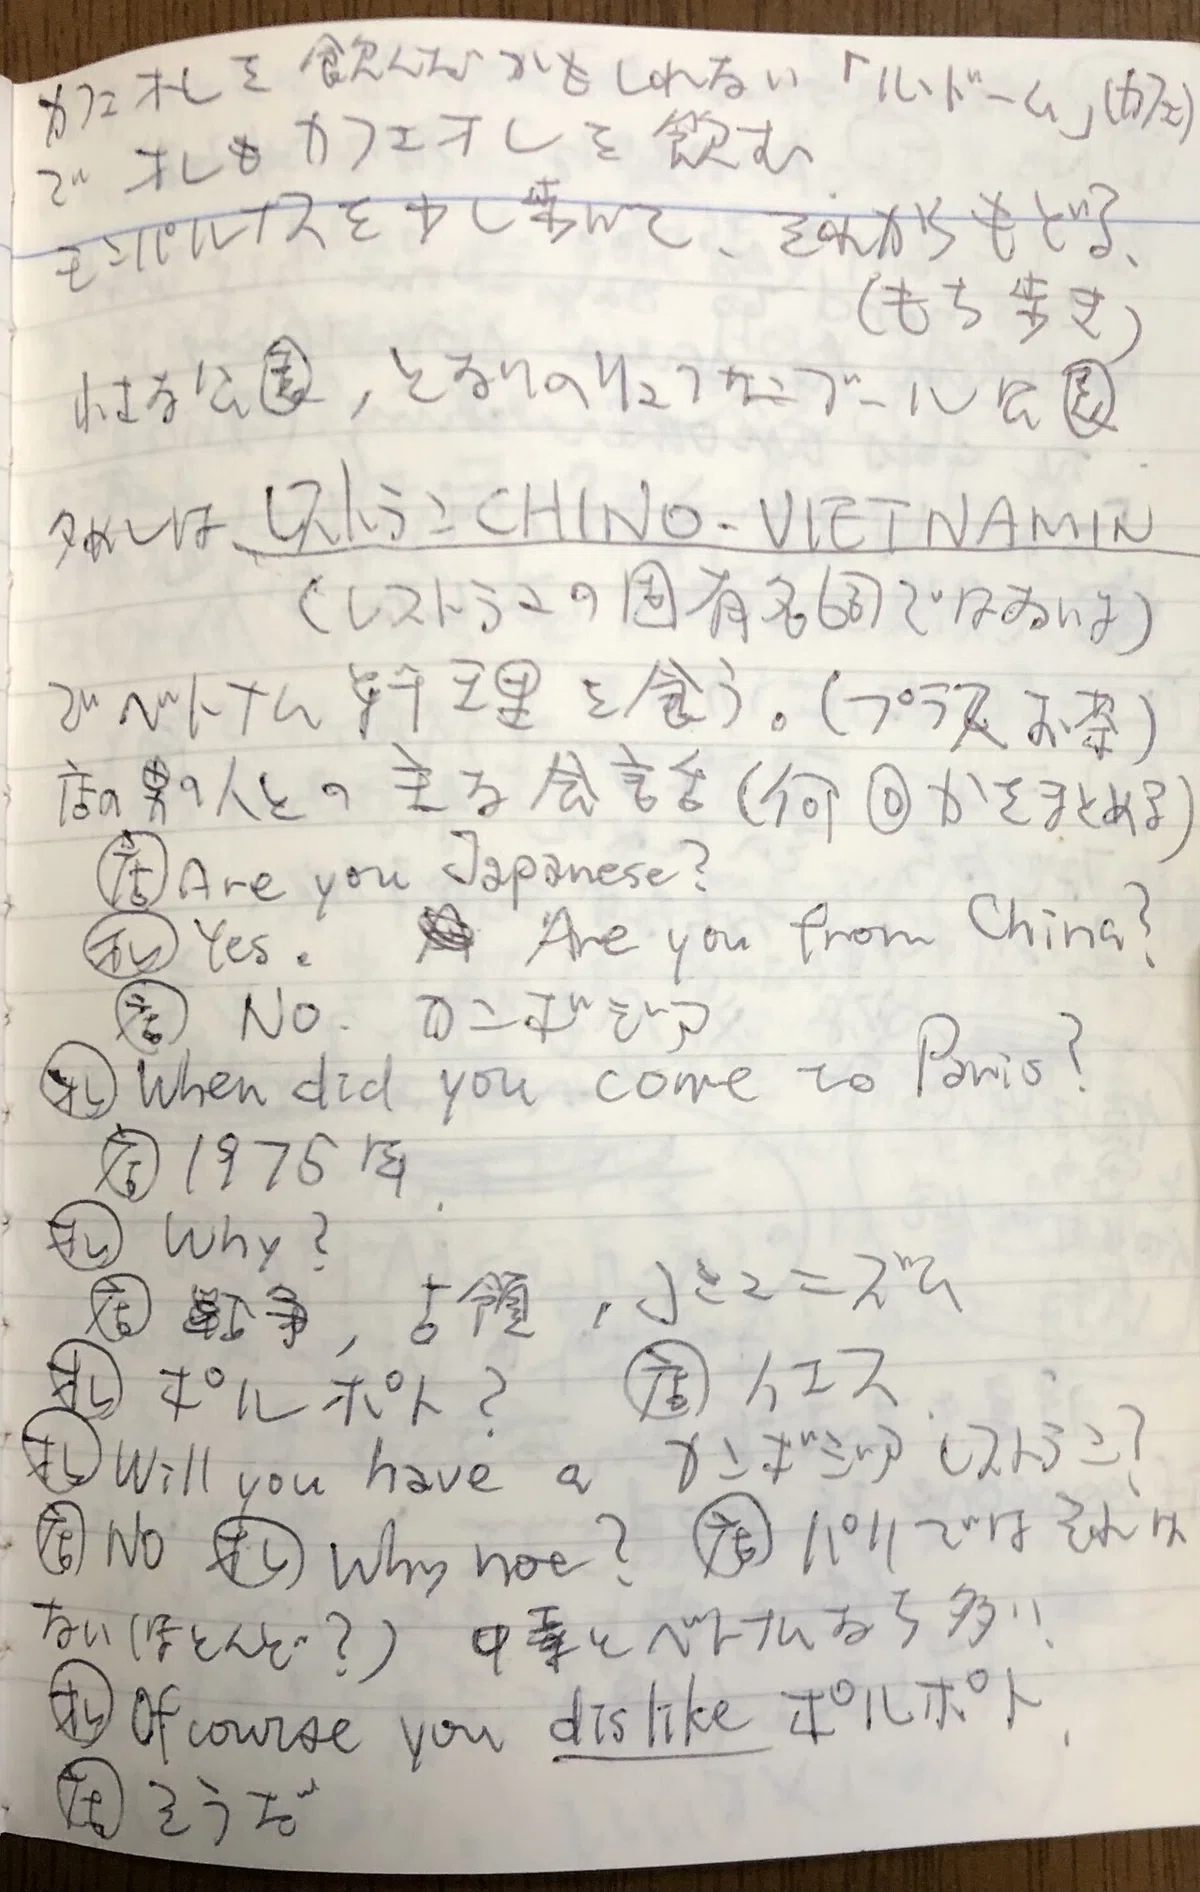 カフェオレを飲んだかもしれない「ル・ドーム」(カフェ)
でオレもカフェオレを飲む
モンパルナスを少し歩いて、それからもどる、
(もち歩き)
公園，となりのリュクサンブール公園
夕めしは レストランCHINO-VIETNAMIN
(レストランの固有名詞ではないよ)
でベトナム料理を食う。(プラスお茶)
店の男の人との主な会話(何回かをまとめる)
店 Are you Japanese?
オレ Yes. Are you from China?
店 No. カンボジア
オレ When did you come to Paris?
店 1975年.
オレ Why?
店 戦争，占領，コミュニズム
オレ ポルポト? 店 イエス
オレ Will you have a カンボジアレストラン?
店 No オレ Why not? 店 パリではそれは
ない(ほとんど?) 中華とベトナムなら多い!
オレ Of course you dislike ポルポト.
店 そうだ